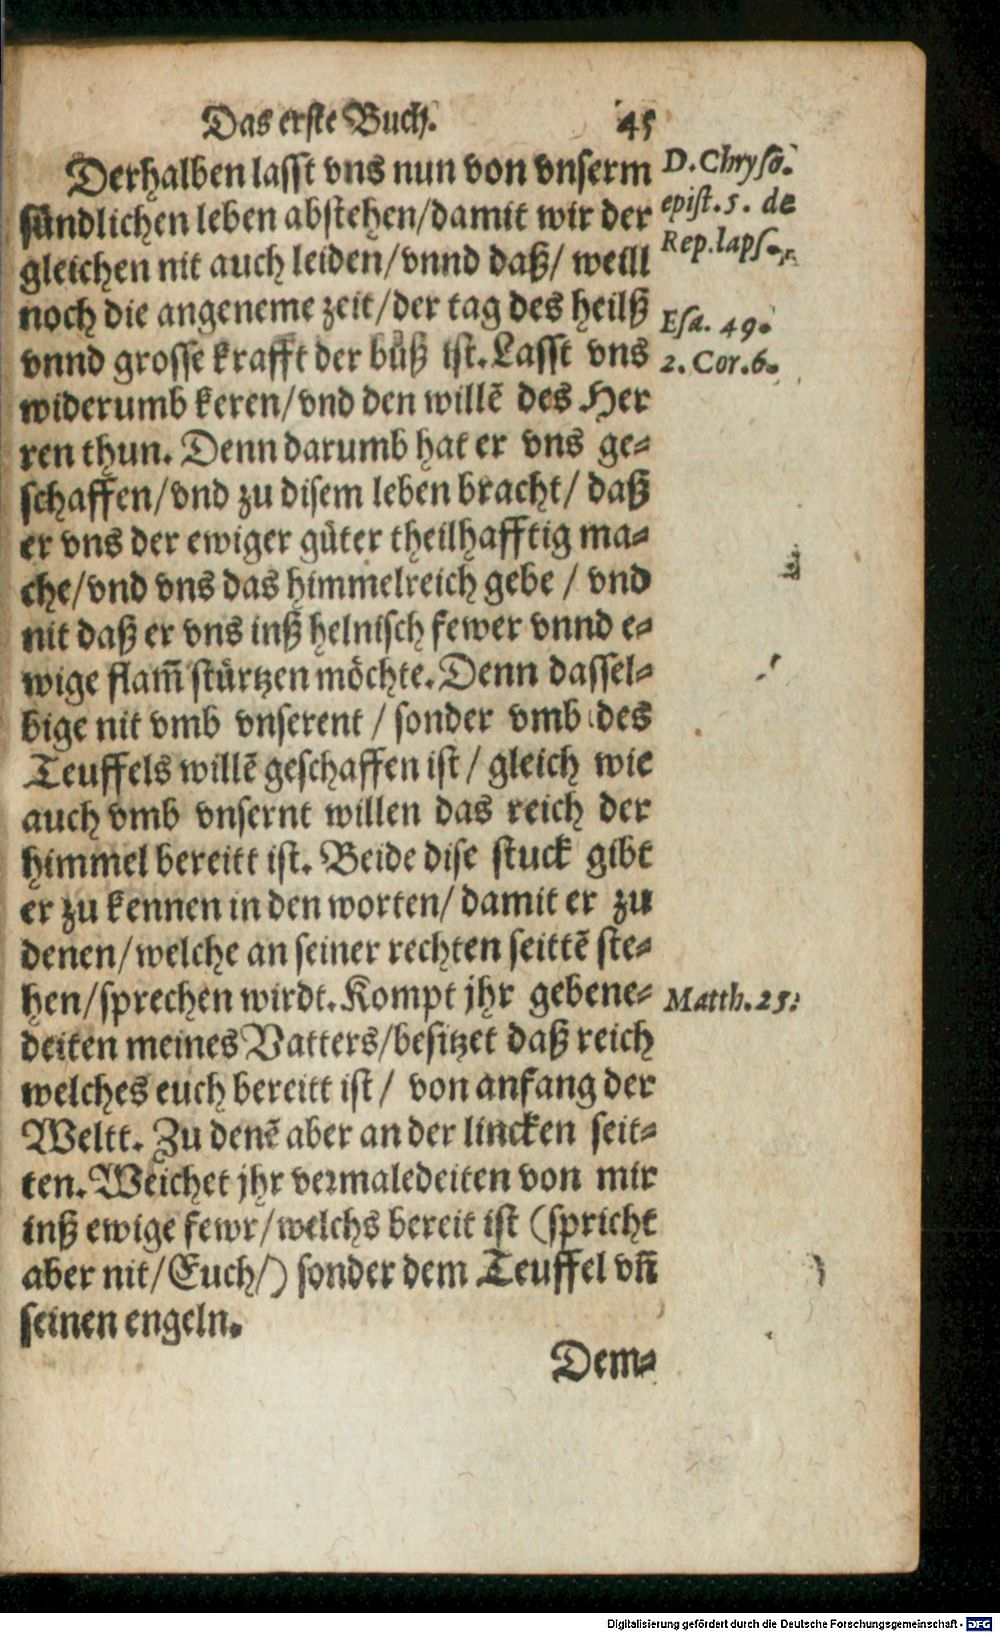 Das erste Buch. 45
Derhalben lasst vns nun von vnserm
sündlichen leben abstehen/damit wir der
gleichen nit auch leiden/vnnd daß/ weill
noch die angeneme zeit/der tag des heilß
vnnd grosse krafft der büß ist. Lasst vns
widerumb keren/vnd den willē des Her
ren thun. Denn darumb hat er vns ge-
schaffen/vnd zu disem leben bracht/ daß
er vns der ewiger güter theilhafftig ma-
che/vnd vns das himmelreich gebe / vnd
nit daß er vns inß helnisch fewer vnnd e-
wige flam̄ stürtzen möchte. Denn dassel-
bige nit vmb vnserent / sonder vmb des
Teuffels willē geschaffen ist / gleich wie
auch vmb vnsernt willen das reich der
himmel bereitt ist. Beide dise stuck gibt
er zu kennen in den worten/ damit er zu
denen/welche an seiner rechten seittē ste-
hen/sprechen wirdt. Kompt jhr gebene-
deiten meines Vatters/besitzet daß reich
welches euch bereitt ist/ von anfang der
Weltt. Zu denē aber an der lincken seit-
ten. Weichet jhr vermaledeiten von mir
inß ewige fewr/welchs bereit ist (spricht
aber nit/Euch/) sonder dem Teuffel vn̄
seinen engeln.
Dem-
D. Chrysō.
epist. 5. de
Rep. laps.
Esa. 49.
2. Cor. 6.
Matth. 25:
Digitalisierung gefördert durch die Deutsche Forschungsgemeinschaft - DFG